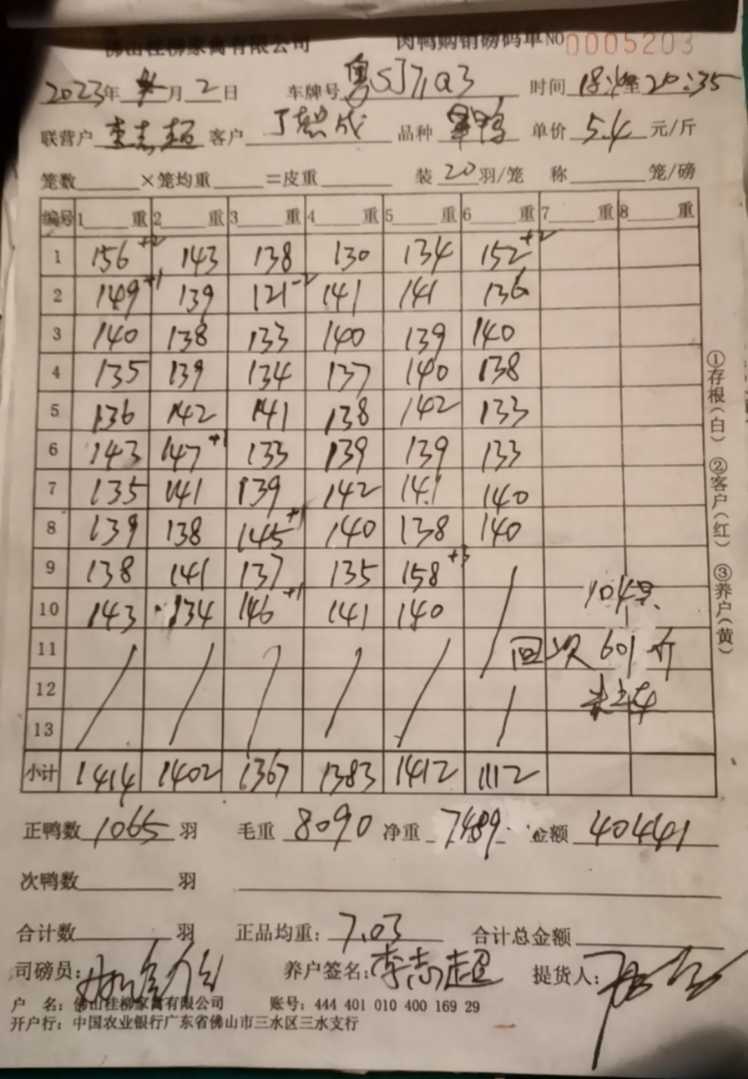 佛山桂柳家禽有限公司 肉鸭购销磅码单 NO 0005203
2023年 月 2 日 车牌号 粤 时间 20:35
联营户 李志超 客户 品种 单价 5.4 元/斤
笼数 ×笼均重 =皮重 装 20 羽/笼 称 笼/磅
编号 1 重 2 重 3 重 4 重 5 重 6 重 7 重 8 重
1 156+2 143 138 130 134 152+2
2 149+1 139 121-2 141 141 136
3 140 138 133 140 139 140
4 135 139 134 137 140 138
5 136 142 141 138 142 133
6 143 147+1 133 139 139 133
7 135 141 139 142 141 140
8 139 138 145+1 140 138 140
9 138 141 137 135 158+3
10 143 134 146+1 141 140
11 601斤
12
13
小计 1414 1402 1367 1383 1412 1112
正鸭数 1065 羽 毛重 8090 净重 7489 金额 40441
次鸭数 羽
合计数 羽 正品均重: 7.03 合计总金额
司磅员: 养户签名: 李志超 提货人:
户 名: 佛山桂柳家禽有限公司 账号: 444 401 010 400 169 29
开户行: 中国农业银行广东省佛山市三水区三水支行
①存根(白) ②客户(红) ③养户(黄)